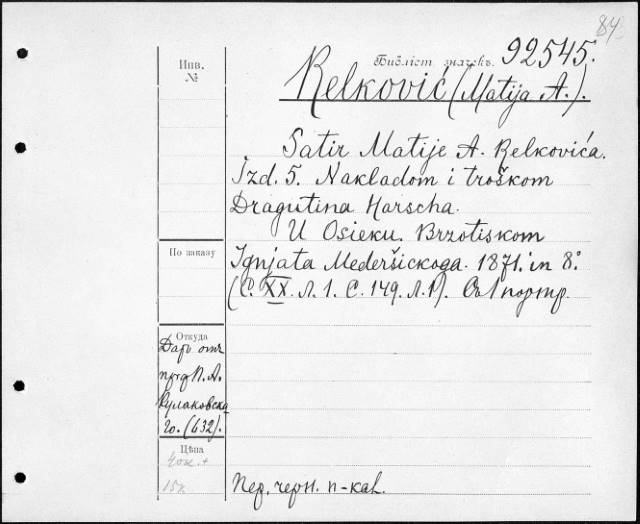 84
Инв.
№
Библіот. значекъ. 92545.
Relković (Matija A.).
Satir Matije A. Relkovića.
Izd. 5. Nakladom i troškom
Dragutina Harscha.
U Osieku. Brzotiskom
По заказу
Ignjata Mederšickoga. 1871. in 8°.
(С. XX. Л. 1. С. 149. Л. 1). Съ 1 портр.
Откуда
Даръ отъ
П. А.
Кулаковска
го. (632).
Цѣна
15к.
Пер. черн. п-кал.